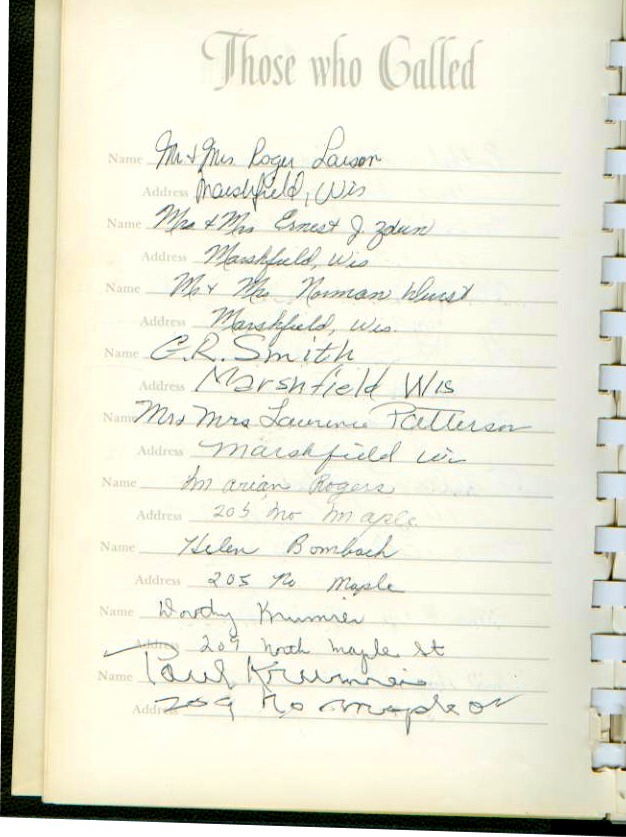 Those who Called
Name Mr. & Mrs Roger Larson
Address Marshfield, Wis
Name Mrs & Mrs Ernest J. Zdun
Address Marshfield, Wis
Name Mr & Mrs Norman Wurst
Address Marshfield, Wis.
Name G.R. Smith
Address Marshfield Wis
Name Mrs Mrs Laurence Patterson
Address Marshfield Wis
Name Marian Rogers
Address 205 No Maple
Name Helen Bombach
Address 205 No Maple
Name Krumrei
Address 209 North Maple St
Name Paul Krumrei
Address 209 No Maple